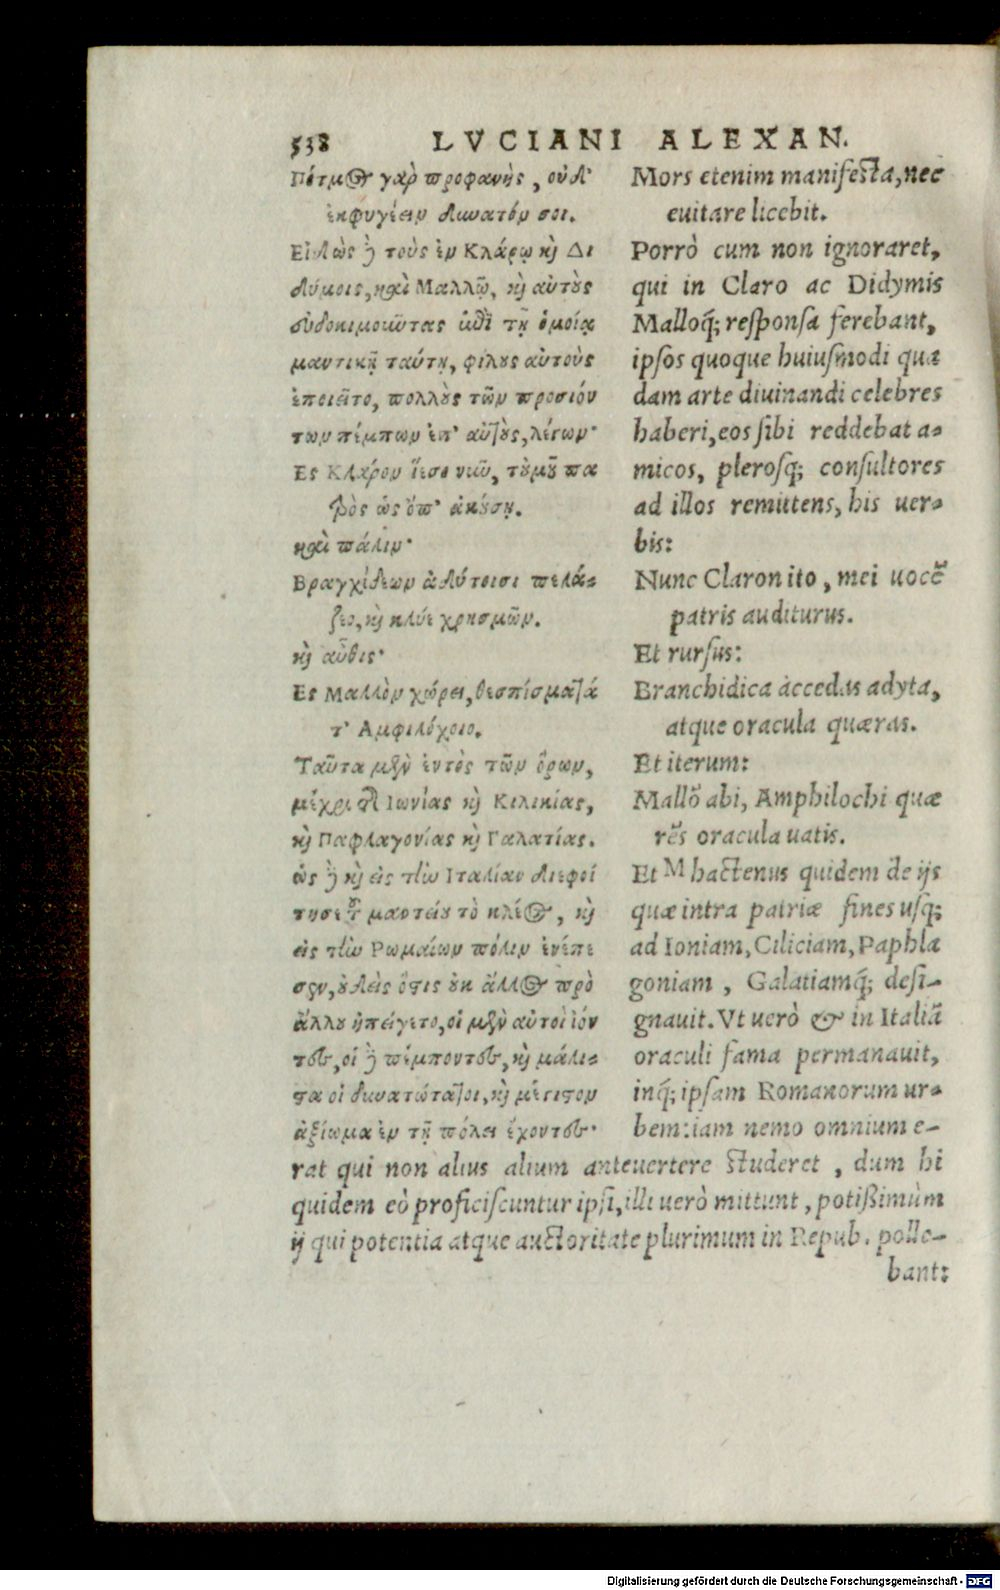 538 LVCIANI ALEXAN.
Πότμος γαρ προφανὴς, οὐδ'
ἐκφυγέειν δυνατόν σοι.
Εἰδὼς δὲ τοὺς ἐν Κλάρῳ καὶ Δι
δύμοις, καὶ Μαλλῷ, καὶ αὐτοὺς
εὐδοκιμοῦντας ἐπὶ τῇ ὁμοίᾳ
μαντικῇ ταύτῃ, φίλους αὐτοὺς
ἐποιεῖτο, πολλοὺς τῶν προσιόν
των πέμπων ἐπ' αὐτοὺς, λέγων·
Ες Κλάρον ἵεσο νῦν, τοὐμοῦ πα
τρὸς ὡς ὄπ' ἀκούσῃ.
καὶ πάλιν·
Βραγχίδεων ἀδύτοισι πελά-
ζεο, καὶ κλύε χρησμῶν.
καὶ αὖθις·
Ες Μαλλὸν χώρει, θεσπίσματά
τ' Αμφιλόχοιο.
Ταῦτα μὲν ἐντὸς τῶν ὅρων,
μέχρι τῆς Ιωνίας καὶ Κιλικίας,
καὶ Παφλαγονίας καὶ Γαλατίας.
ὡς δὲ καὶ εἰς τὴν Ιταλίαν διεφοί
τησε τοῦ μαντείου τὸ κλέος, καὶ
εἰς τὴν Ρωμαίων πόλιν ἐνέπε
σεν, οὐδεὶς ὅστις οὐκ ἄλλος πρὸ
ἄλλου ἠπείγετο, οἱ μὲν αὐτοὶ ἰόν
τες, οἱ δὲ πέμποντες, καὶ μάλι-
στα οἱ δυνατώτατοι, καὶ μέγιστον
ἀξίωμα ἐν τῇ πόλει ἔχοντες·
Mors etenim manifesta, nec
euitare licebit.
Porrò cum non ignoraret,
qui in Claro ac Didymis
Malloq́; responsa ferebant,
ipsos quoque huiusmodi quæ
dam arte diuinandi celebres
haberi, eos sibi reddebat a-
micos, plerosq; consultores
ad illos remittens, his uer-
bis:
Nunc Claron ito, mei uocẽ
patris auditurus.
Et rursus:
Branchidica accedas adyta,
atque oracula quæras.
Et iterum:
Mallõ abi, Amphilochi quæ
rẽs oracula uatis.
Et M hactenus quidem de ijs
quæ intra patriæ fines usq;
ad Ioniam, Ciliciam, Paphla
goniam, Galatiamq́; desi-
gnauit. Vt uerò & in Italiã
oraculi fama permanauit,
inq́; ipsam Romanorum ur-
bem: iam nemo omnium e-
rat qui non alius alium anteuertere studeret, dum hi
quidem eò proficiscuntur ipsi, illi uerò mittunt, potißimùm
ij qui potentia atque auctoritate plurimum in Repub. polle-
bant:
Digitalisierung gefördert durch die Deutsche Forschungsgemeinschaft - DFG